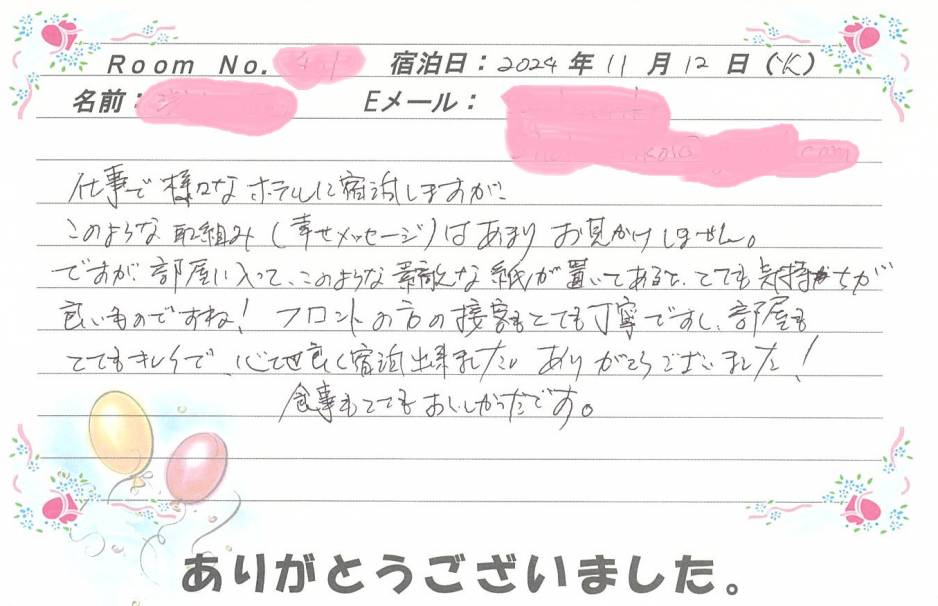 Room No. 宿泊日：2024年11月12日(火)
名前： Eメール：
com
仕事で様々なホテルに宿泊しますが、
このような取組み(幸せメッセージ)はあまりお見かけしません。
ですが、部屋に入って、このような素敵な紙が置いてあると、とても気持ちが
良いものですね！フロントの方の接客もとても丁寧ですし、部屋も
とてもキレイで、心地良く宿泊出来ました。ありがとうございました！
食事もとてもおいしかったです。
ありがとうございました。